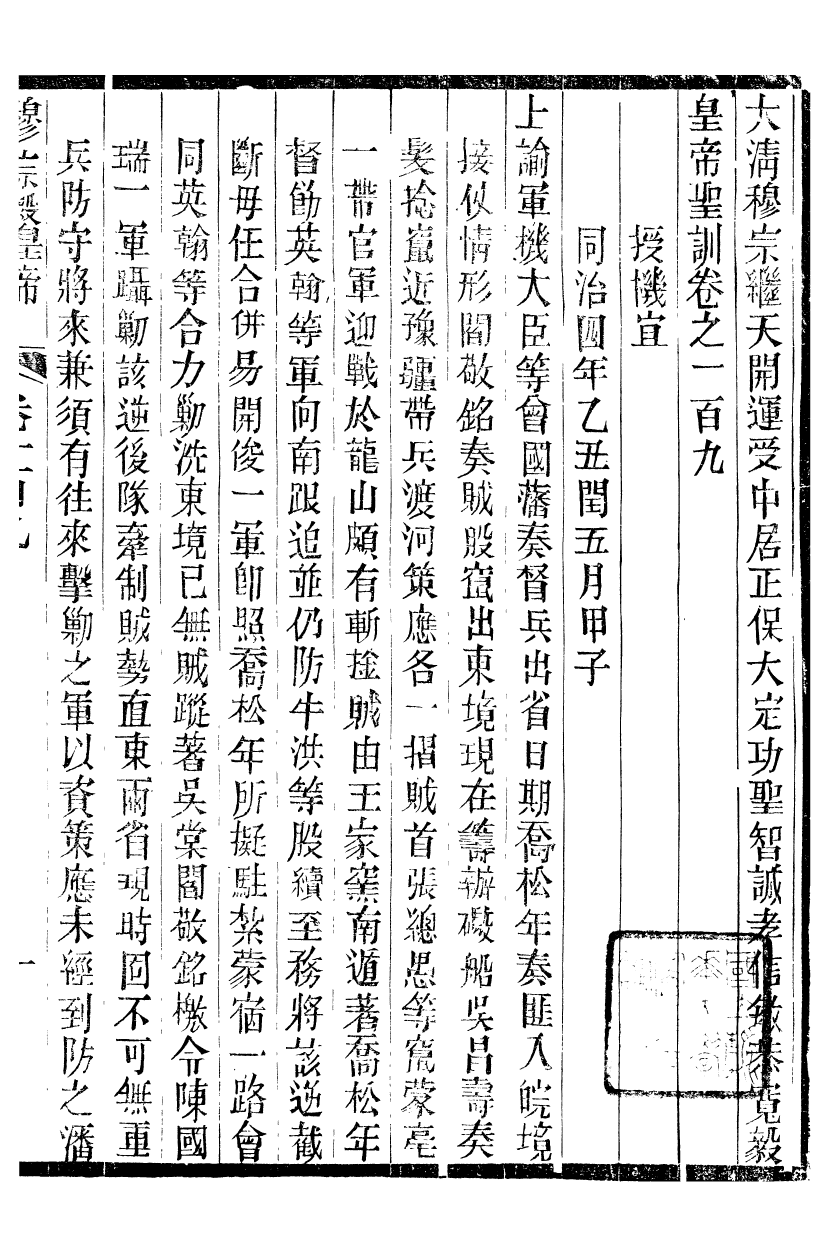 大清穆宗繼天開運受中居正保大定功聖智誠孝信敏恭寬毅
皇帝聖訓卷之一百九
授機宜
同治四年乙丑閏五月甲子
上諭軍機大臣等曾國藩奏督兵出省日期喬松年奏匪入皖境
接仗情形閻敬銘奏賊股竄出東境現在籌辦礮船吳昌壽奏
髮捻竄近豫疆帶兵渡河策應各一摺賊首張總愚等竄蒙亳
一帶官軍迎戰於龍山頗有斬捦賊由王家窯南遁著喬松年
督飭英翰等軍向南跟追並仍防牛洪等股續至務將該逆截
斷毋任合併易開俊一軍卽照喬松年所擬駐紮蒙宿一路會
同英翰等合力勦洗東境已無賊蹤著吳棠閻敬銘檄令陳國
瑞一軍躡勦該逆後隊牽制賊勢直東兩省現時固不可無重
兵防守將來兼須有往來擊勦之軍以資策應未經到防之潘
穆宗毅皇帝
卷一百九
一